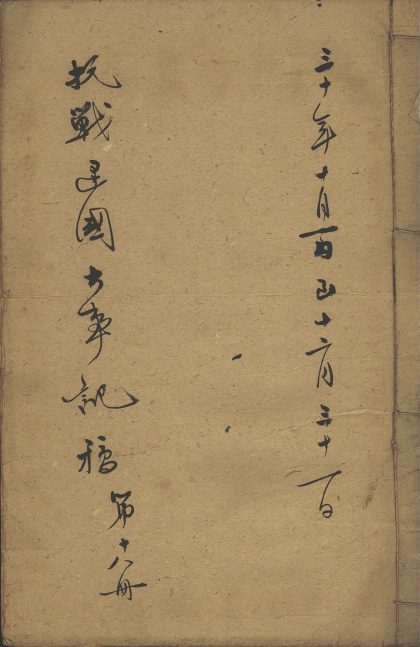 三十年十月一日至十二月三十一日
抗戰建國大事記稿
第十八冊